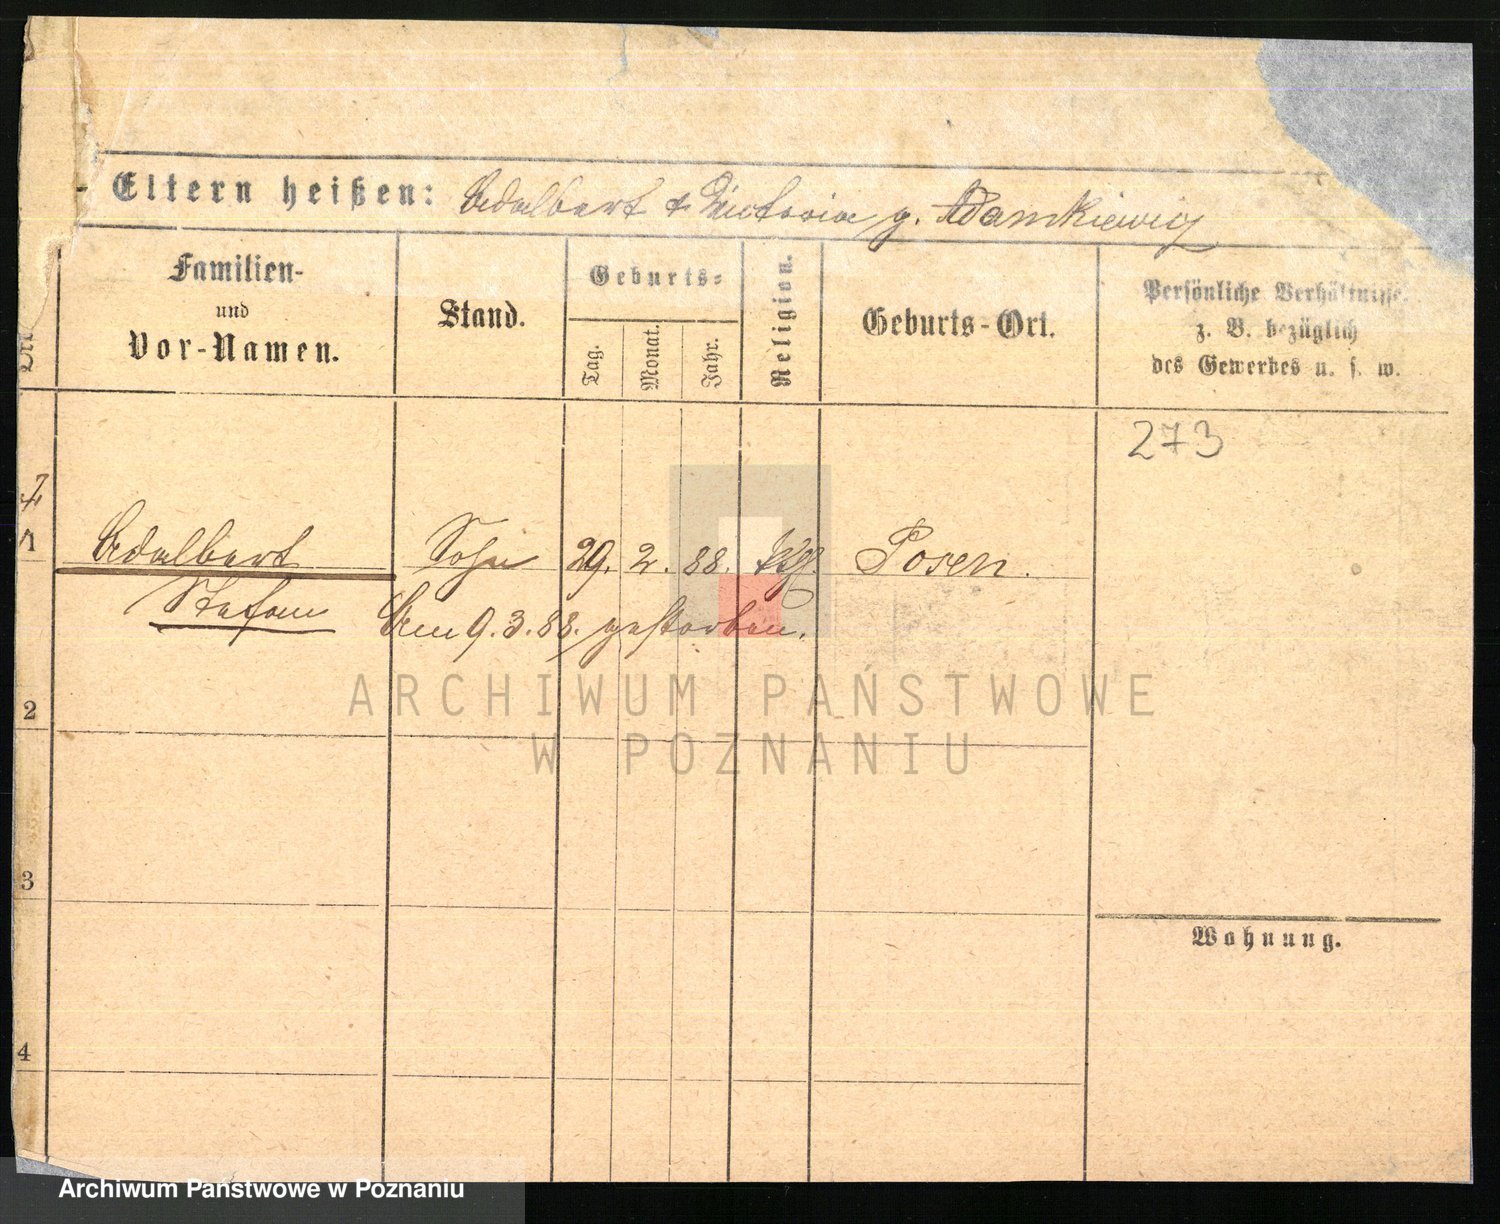 Eltern heißen: Adalbert & Victoria g. Adamkiewicz
Familien-
und
Vor-Namen.
Stand.
Geburts-
Tag.
Monat.
Jahr.
Religion.
Geburts-Ort.
Persönliche Verhältnisse
z. B. bezüglich
des Gewerbes u. s. w.
273
†
1
Adalbert Sohn 29. 2. 88. kth. Posen.
Stefan Am 9.3.88. gestorben.
ARCHIWUM PAŃSTWOWE
W POZNANIU
2
3
Wohnung.
4
Archiwum Państwowe w Poznaniu